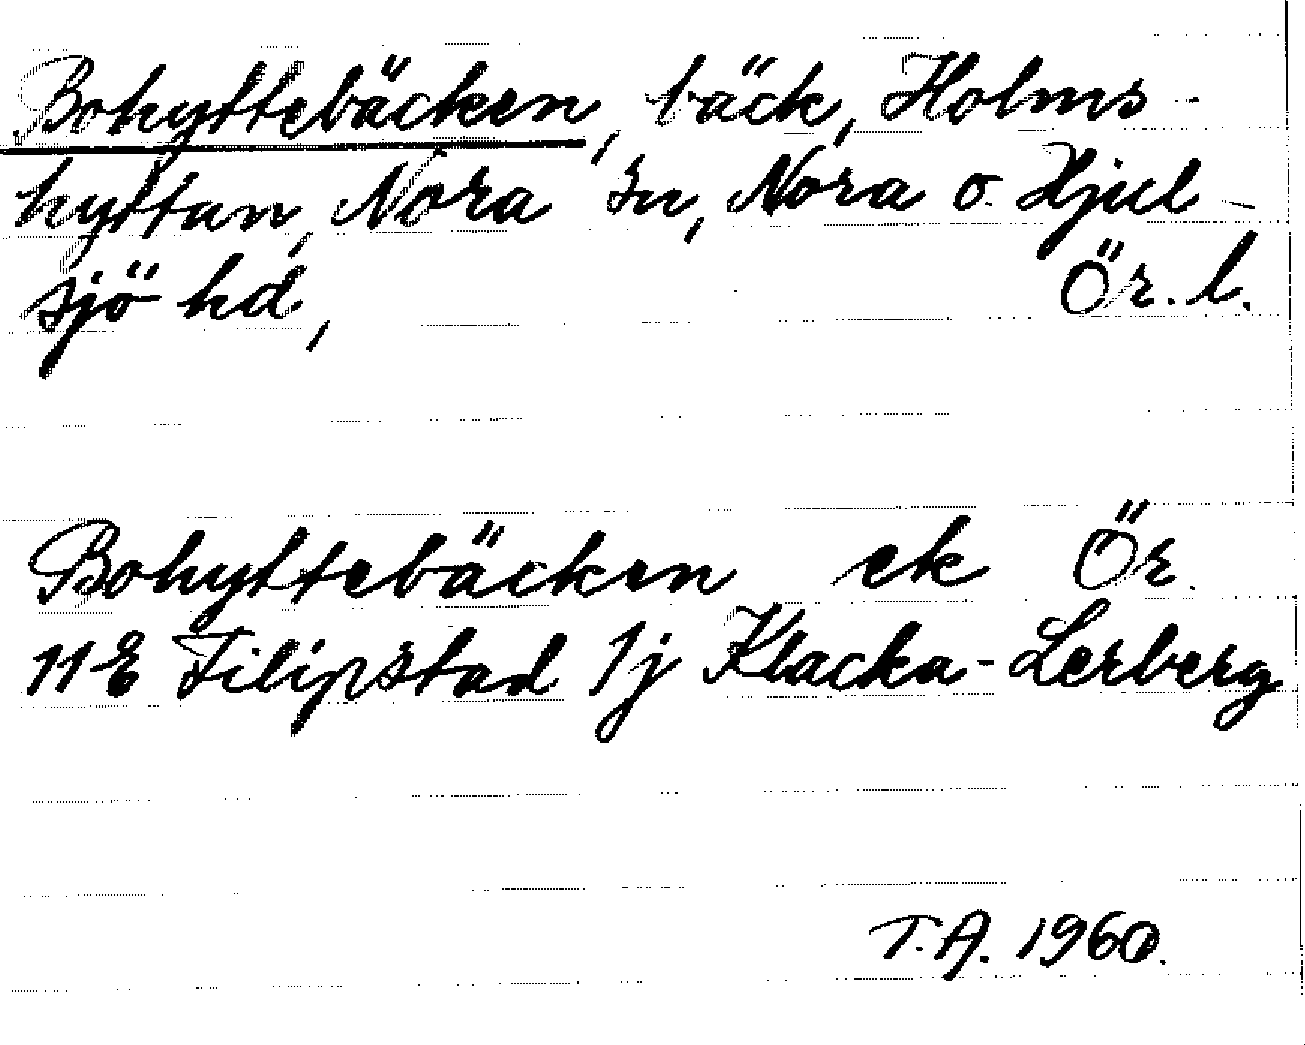 Bohyttebäcken, bäck, Holms-
hyttan, Nora sn, Nora o. Hjul-
sjö hd, Ör. l.
Bohyttebäcken ek Ör.
11E Filipstad 1j Klacka-Lerberg
T.A. 1960.